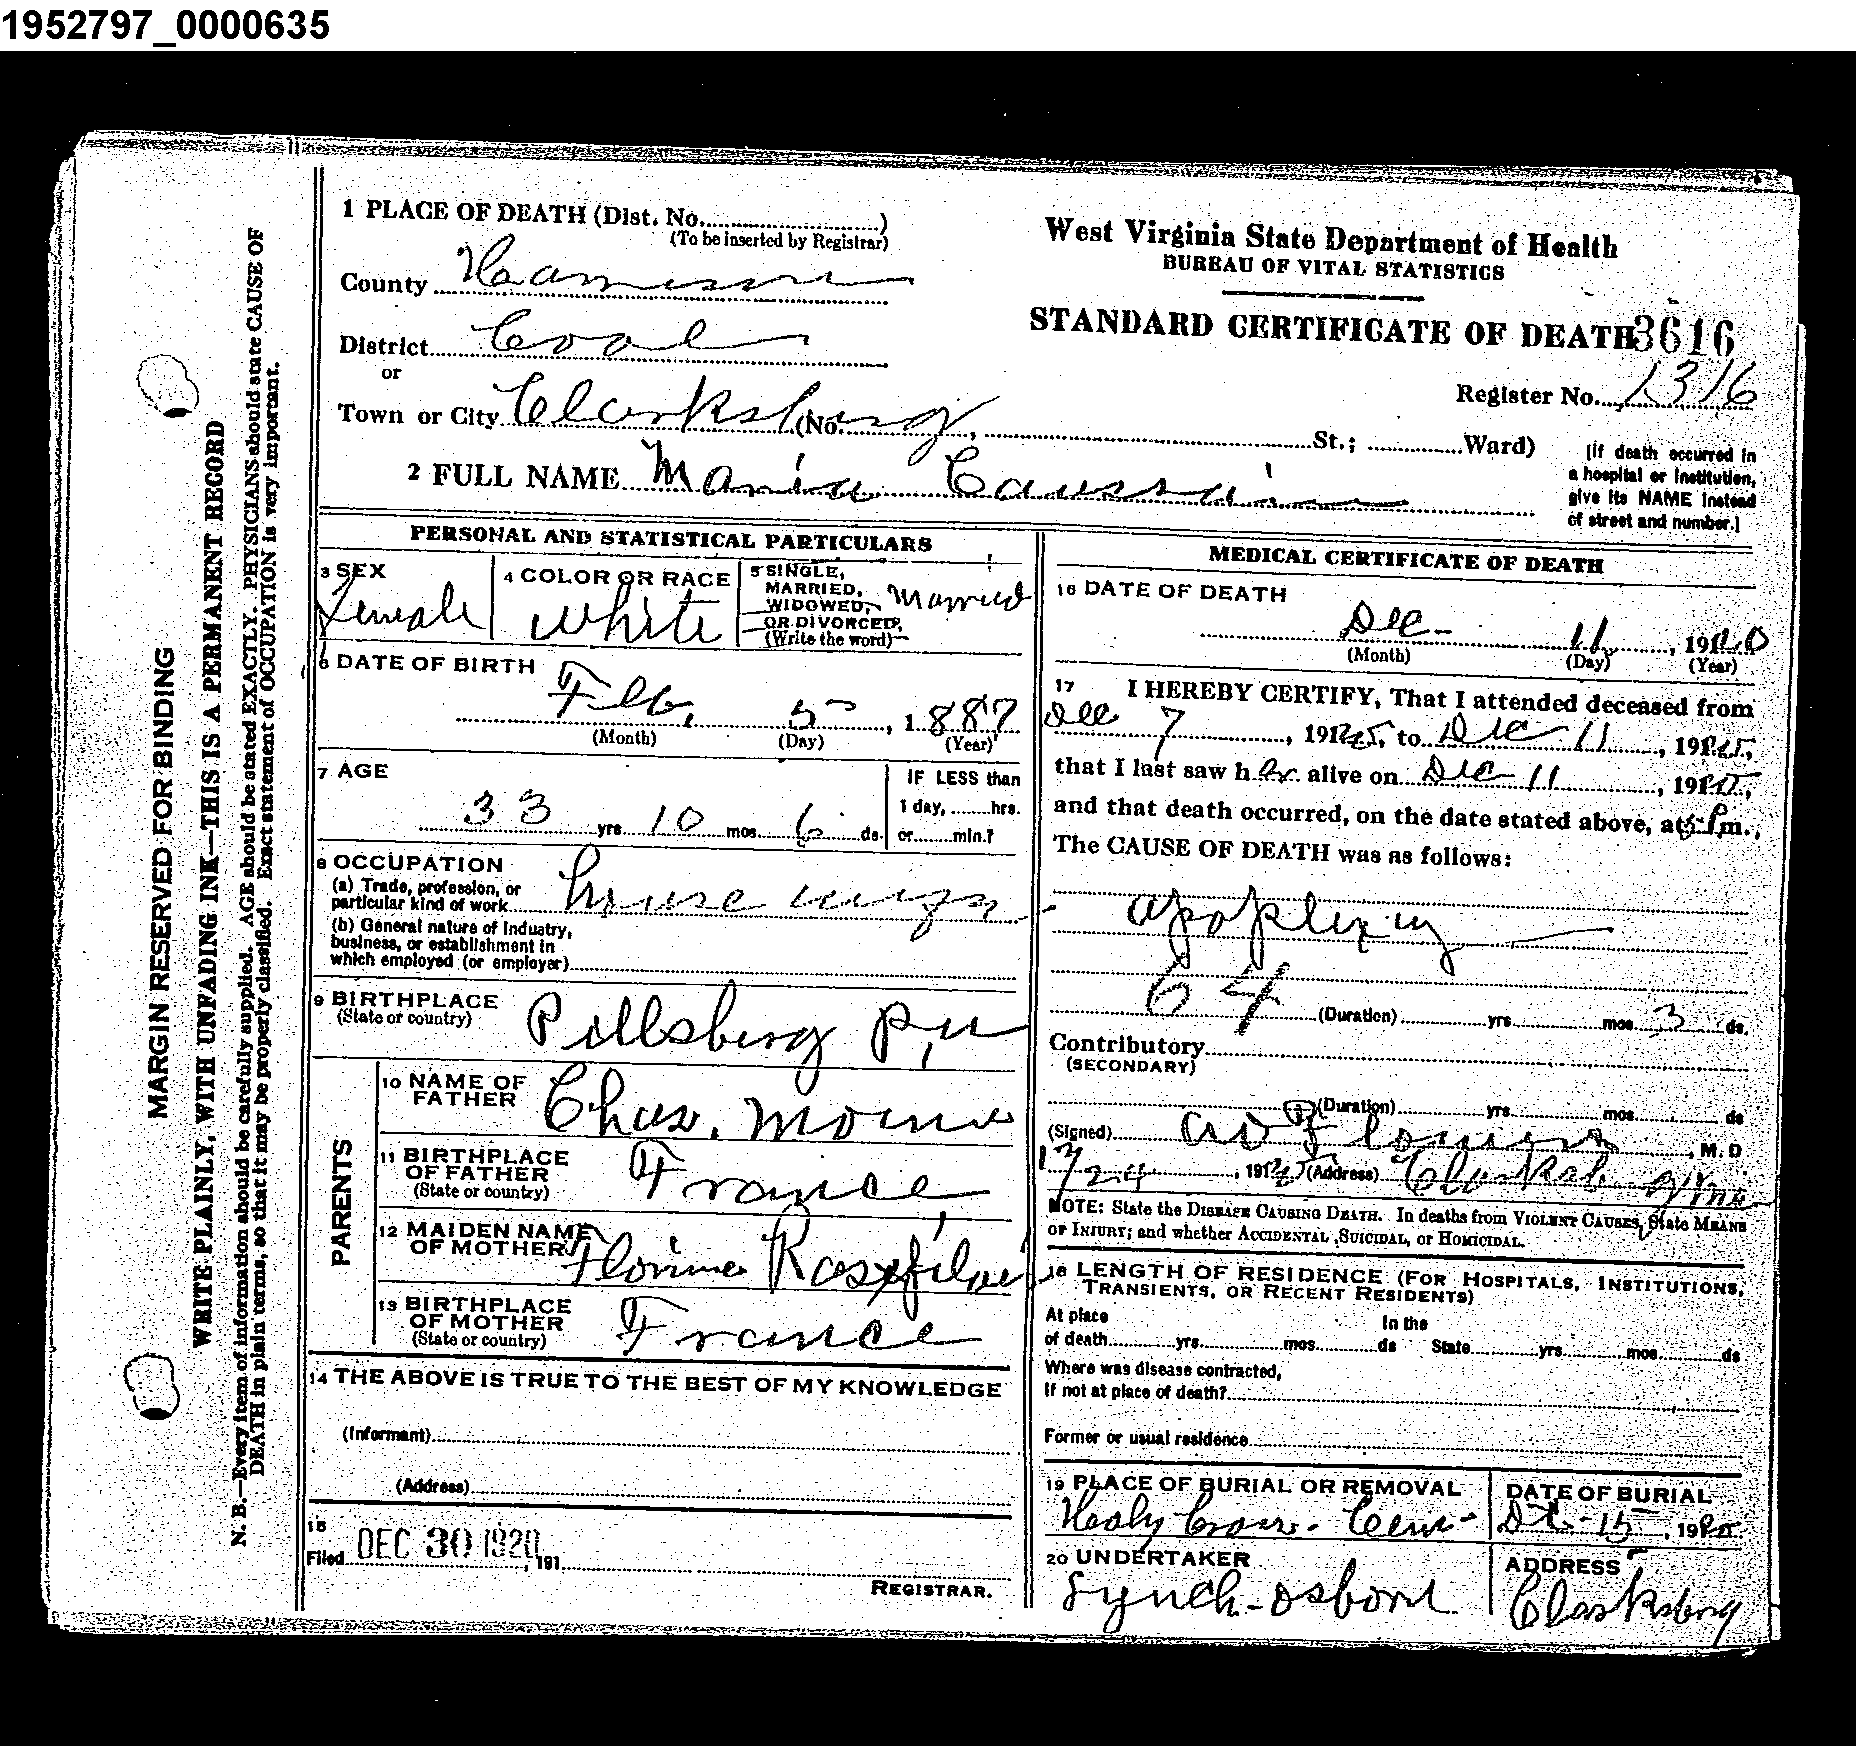 1952797_0000635
1 PLACE OF DEATH (Dist. No. )
(To be inserted by Registrar)
County Harrison
District Coal
or
Town or City Clarksburg (No. , St.; Ward)
2 FULL NAME Maria Caussin
West Virginia State Department of Health
BUREAU OF VITAL STATISTICS
STANDARD CERTIFICATE OF DEATH 3616
Register No. 1316
[If death occurred in
a hospital or institution,
give its NAME instead
of street and number.]
PERSONAL AND STATISTICAL PARTICULARS
3 SEX
Female
4 COLOR OR RACE
White
5 SINGLE,
MARRIED,
WIDOWED,
OR DIVORCED,
(Write the word)
Married
6 DATE OF BIRTH
Feb, 5 , 1887
(Month) (Day) (Year)
7 AGE
33 yrs 10 mos 6 ds.
IF LESS than
1 day, hrs.
or min.?
8 OCCUPATION
(a) Trade, profession, or
particular kind of work house
(b) General nature of Industry,
business, or establishment in
which employed (or employer)
9 BIRTHPLACE
(State or country)
10 NAME OF
FATHER
Chas.
11 BIRTHPLACE
OF FATHER
(State or country)
France
12 MAIDEN NAME
OF MOTHER
13 BIRTHPLACE
OF MOTHER
(State or country)
France
PARENTS
14 THE ABOVE IS TRUE TO THE BEST OF MY KNOWLEDGE
(Informant)
(Address)
15
Filed DEC 30 1920, 191
REGISTRAR.
MEDICAL CERTIFICATE OF DEATH
16 DATE OF DEATH
Dec - 11 , 1920
(Month) (Day) (Year)
17 I HEREBY CERTIFY, That I attended deceased from
Dec 7 , 1920, to Dec 11 , 1920,
that I last saw her alive on Dec 11 , 1920,
and that death occurred, on the date stated above, at 5 Pm.,
The CAUSE OF DEATH was as follows:
apoplexy
64
(Duration) yrs mos 3 ds.
Contributory
(SECONDARY)
(Duration) yrs mos ds
(Signed) , M.D
12/24 , 1920 (Address)
NOTE: State the DISEASE CAUSING DEATH. In deaths from VIOLENT CAUSES, State MEANS
OF INJURY; and whether ACCIDENTAL, SUICIDAL, or HOMICIDAL.
18 LENGTH OF RESIDENCE (FOR HOSPITALS, INSTITUTIONS,
TRANSIENTS, OR RECENT RESIDENTS)
At place In the
of death yrs. mos. ds State yrs. mos. ds
Where was disease contracted,
If not at place of death?
Former or usual residence
19 PLACE OF BURIAL OR REMOVAL
Holy Cross. Cem-
DATE OF BURIAL
Dec - 15 , 1920
20 UNDERTAKER
Lynch-Osborn
ADDRESS
Clarksburg
MARGIN RESERVED FOR BINDING
WRITE PLAINLY, WITH UNFADING INK—THIS IS A PERMANENT RECORD
N. B.—Every item of information should be carefully supplied. AGE should be stated EXACTLY. PHYSICIANS should state CAUSE OF
DEATH in plain terms, so that it may be properly classified. Exact statement of OCCUPATION is very important.